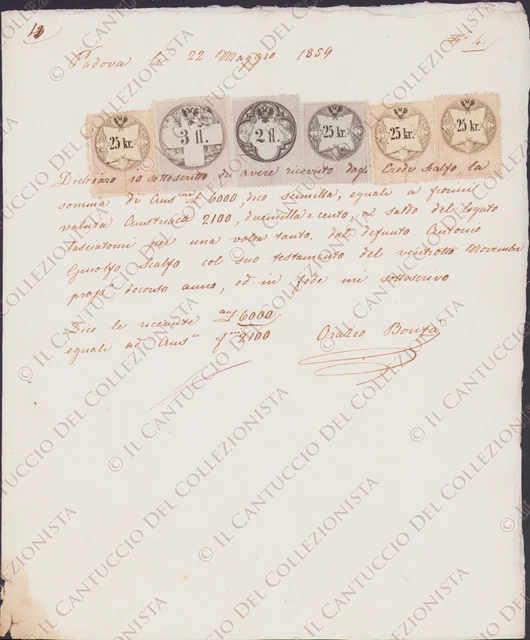 Padova li 22 Maggio 1859
25 kr.
3 fl.
2 fl.
25 kr.
25 kr.
25 kr.
Dichiaro io sottoscritto di avere ricevuto dagli Eredi Scalfo, la
somma di £ 6000 dico seimilla, equali a fiorini
valuta Austriaca 2100, duemilla e cento, a saldo del legato
lasciatomi per una volta tanto, dal defunto Antonio
Scalfo col suo testamento del ventiotto Novembre
decorso anno, ed in fede mi sottoscrivo
Dico le ricevute 6000
equali ad 2100
Orazio
© IL CANTUCCIO DEL COLLEZIONISTA